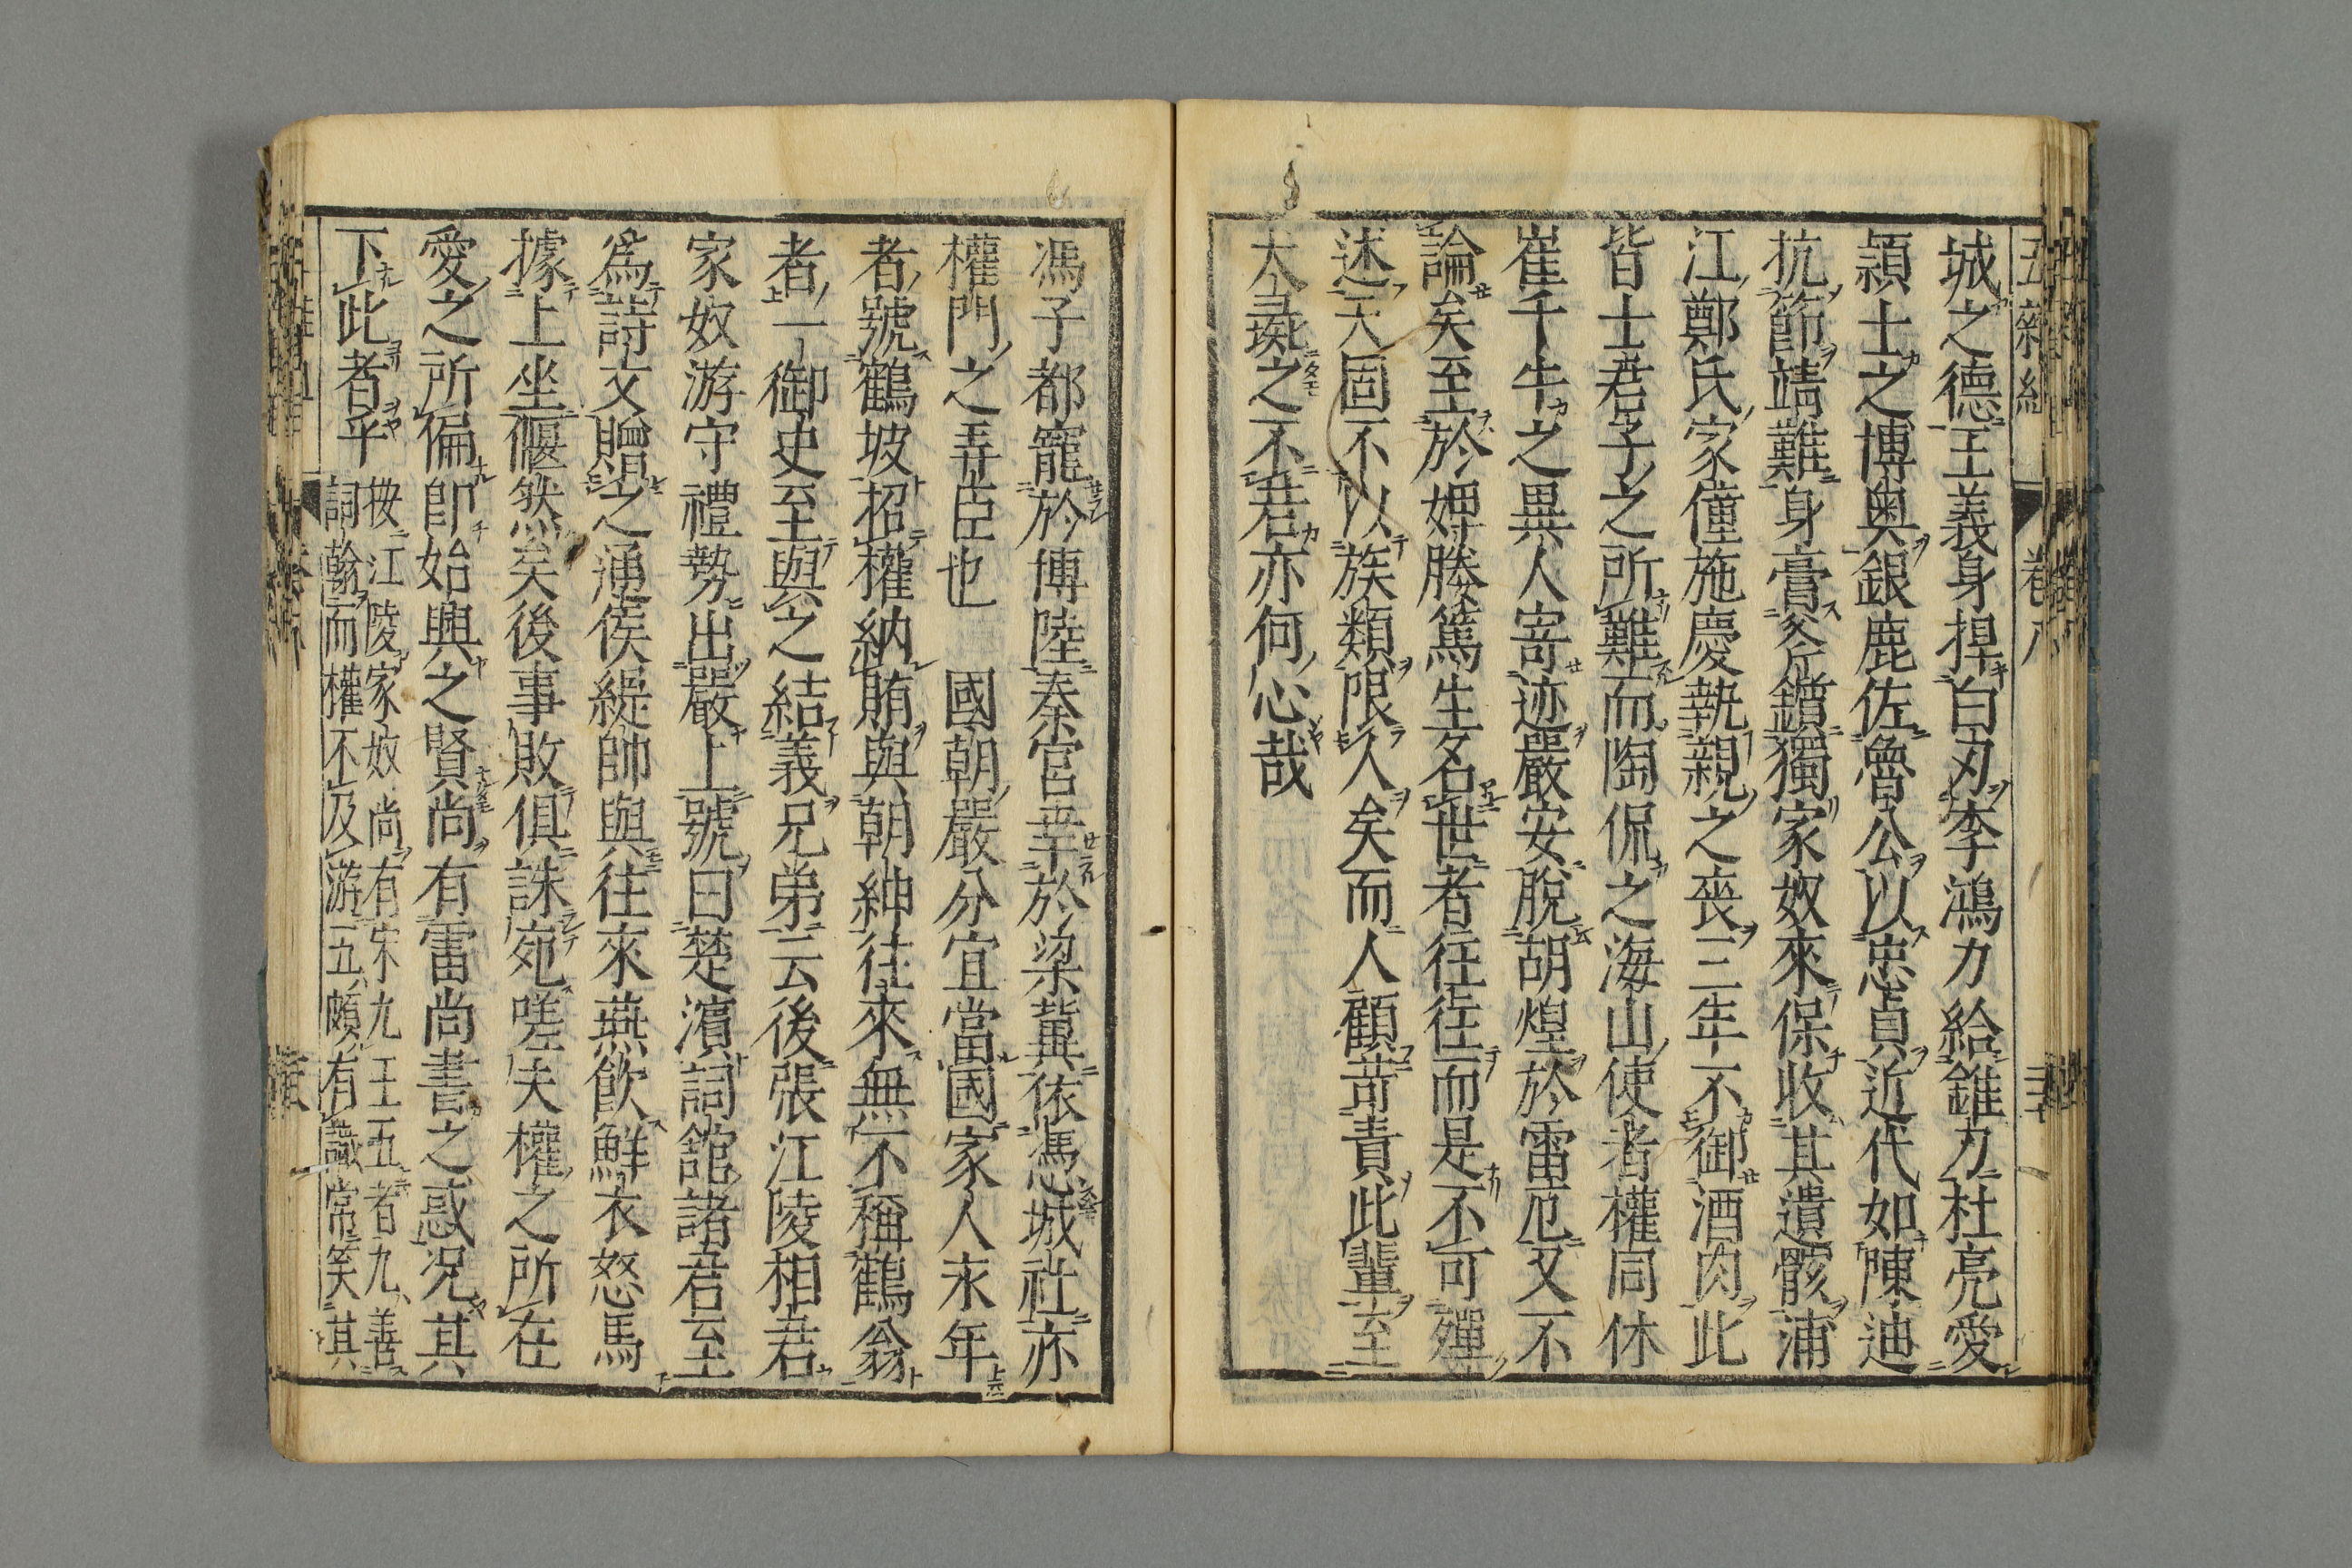 五雜組 卷八 三十
城之德王義身捍白刃李鴻力給錐刀杜亮愛
穎士之博奧銀鹿佐魯公以忠貞近代如陳迪
抗節靖難身膏斧鑕獨家奴來保收其遺骸浦
江鄭氏家僮施慶執親之喪三年不御酒肉此
皆士君子之所難而陶侃之海山使者權同休
崔千牛之異人寄迹嚴安脫胡煌於雷厄又不
論矣至於媵篤生名世者往往而是不可殫
述天固不以族類限人矣而人顧苛責此輩至
犬彘之不若亦何心哉
馮子都寵於博陸秦宮幸於梁冀依憑城社亦
權門之弄臣也 國朝嚴分宜當國家人永年
者號鶴坡招權納賄與朝紳往來無不稱鶴翁
者一御史至與之結義兄弟云後張江陵相君
家奴游守禮勢出嚴上號曰楚濱詞館諸君至
為詩文贈之通侯緹帥與往來燕飲鮮衣怒馬
據上坐偃然矣後事敗俱誅死嗟夫權之所在
愛之所偏卽始興之賢尚有雷尚書之惑況其
下此者乎
按江陵家奴尚有宋九王五者九善
詞翰而權不及游五頗有識常笑其